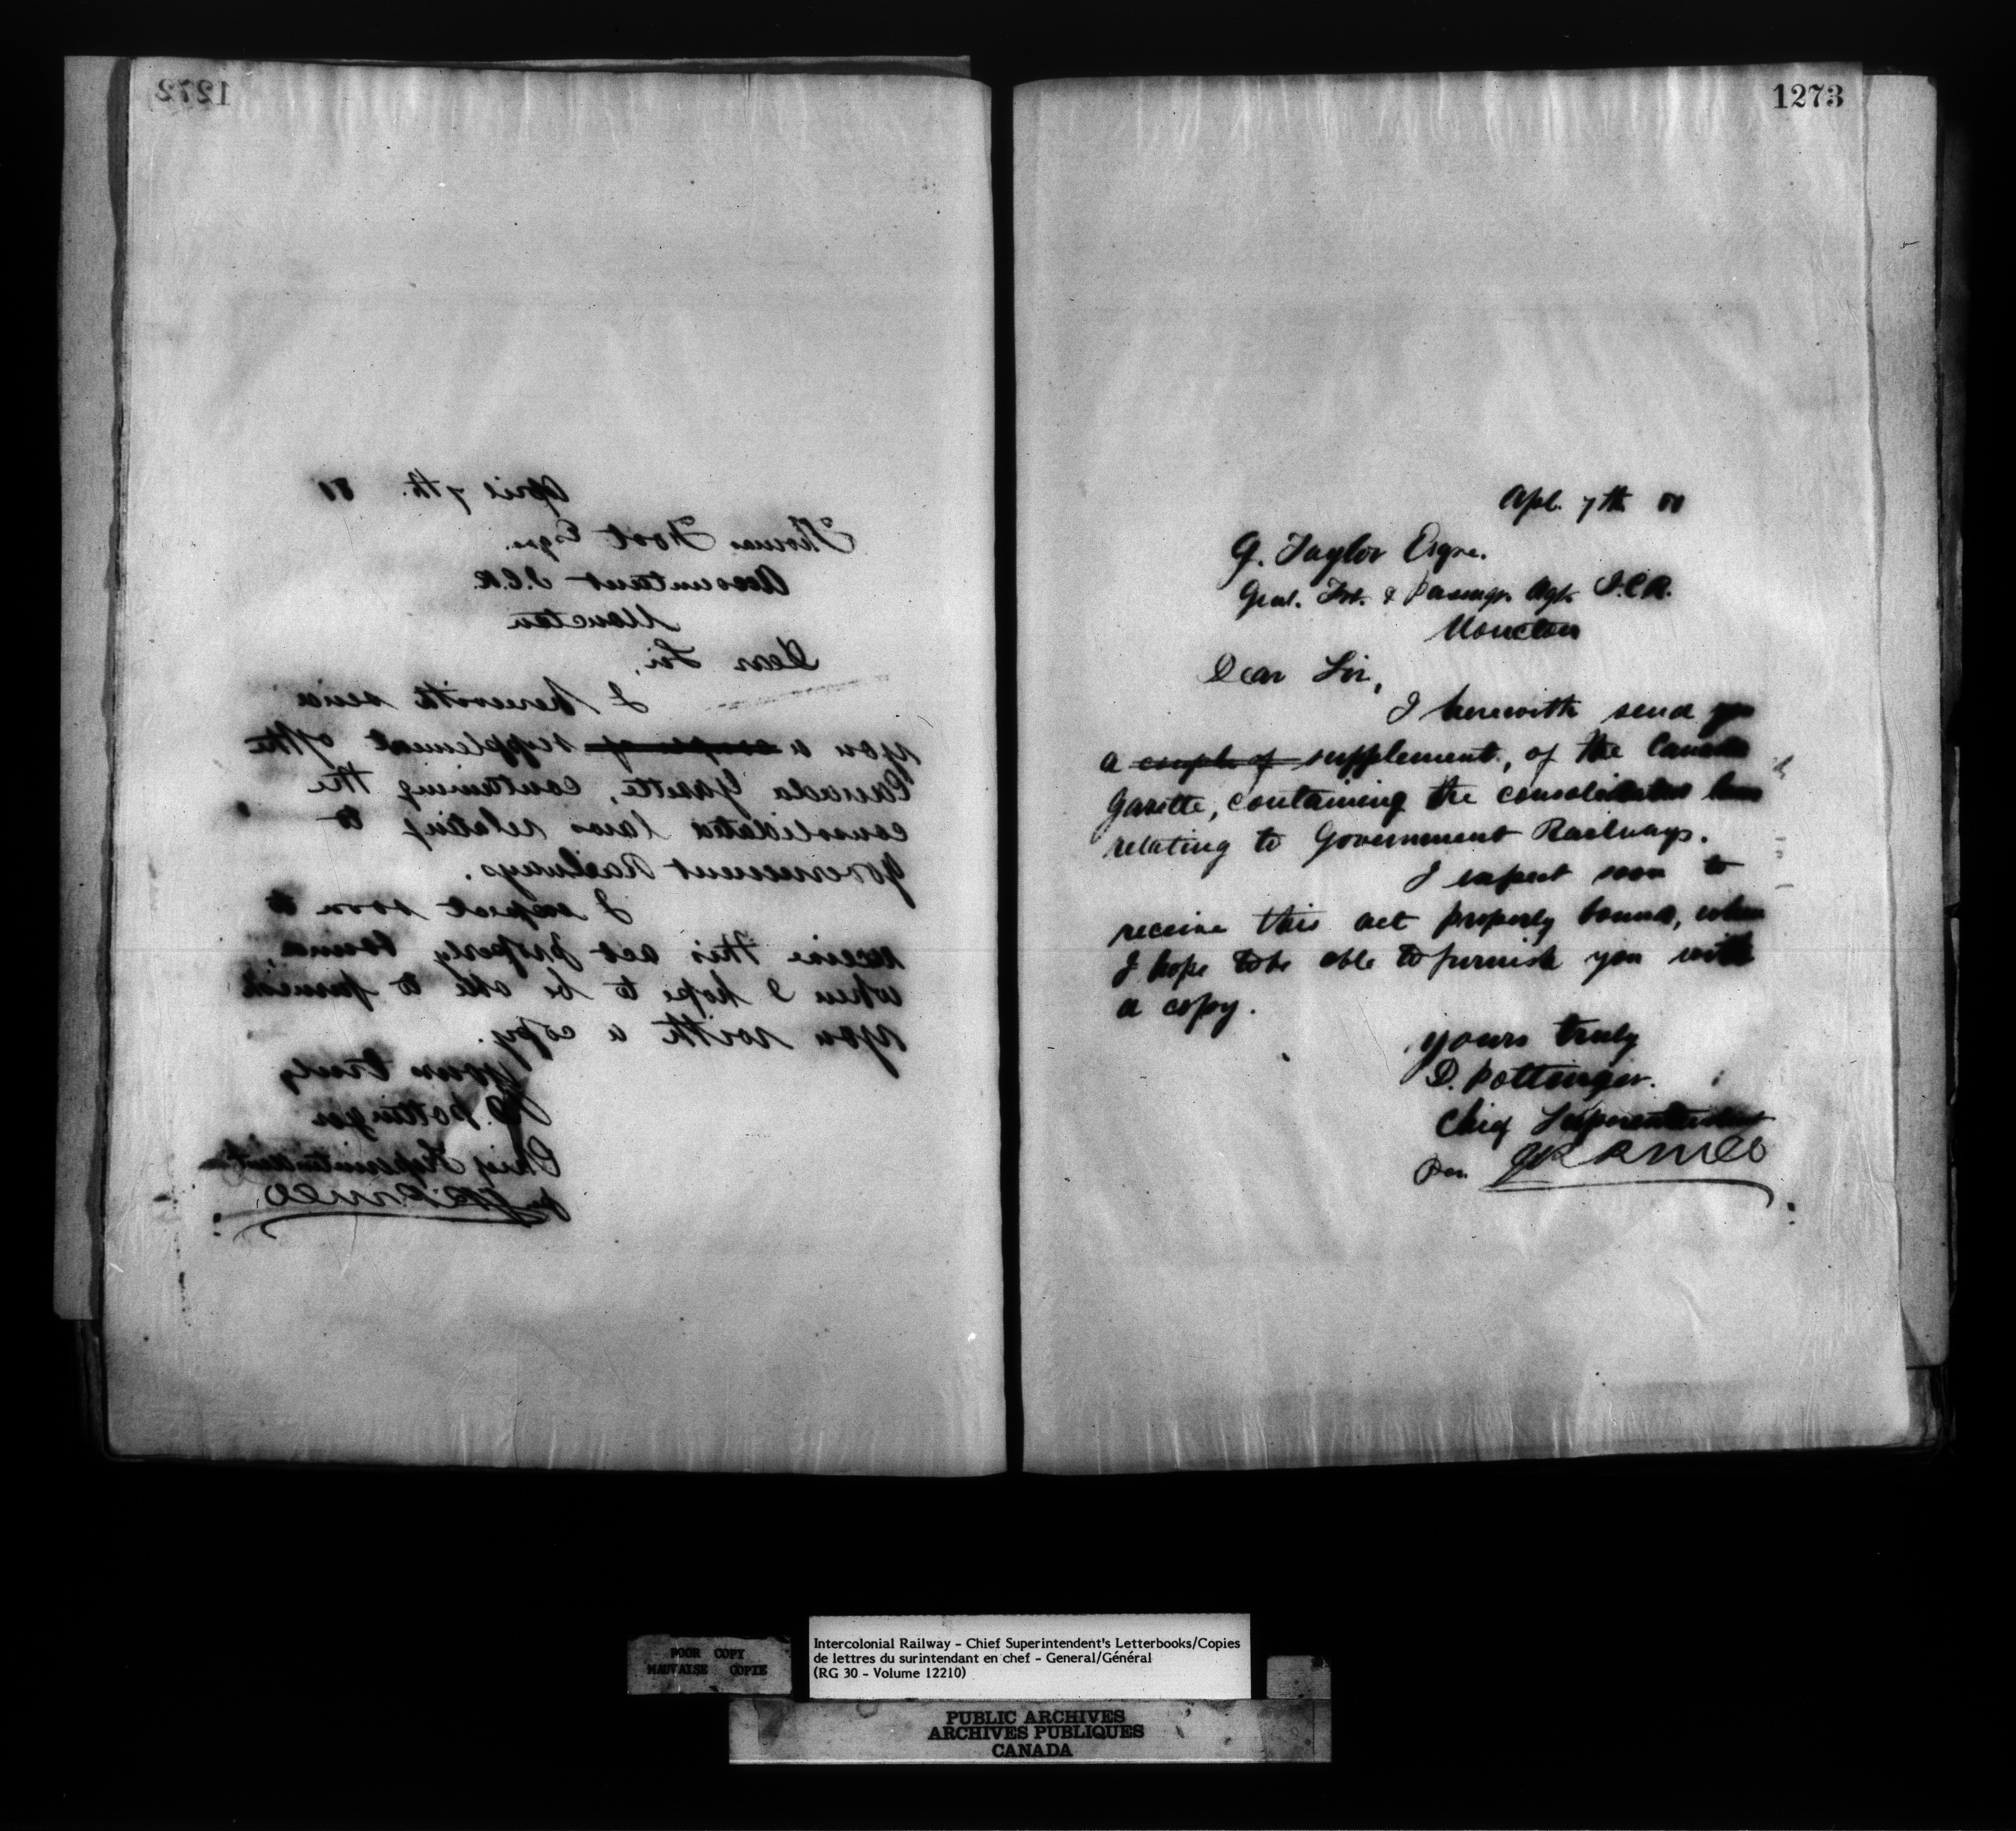 1272
April 7th. 81
Thomas Foot Esqre.
Accountant I.C.R.
Moncton
Dear Sir,
I herewith send
you a couple of supplement of the
Canada Gazette, containing the
consolidated laws relating to
Government Railways.
I expect soon to
receive this act properly bound,
when I hope to be able to furnish
you with a copy.
Yours truly
D. Pottinger
Chief Superintendent
per
1273
Apl. 7th 81
G. Taylor Esqre.
Genl. Frt. & Passngr. Agt. I.C.R.
Moncton
Dear Sir,
I herewith send you
a couple of supplement, of the Canada
Gazette, containing the consolidated laws
relating to Government Railways.
I expect soon to
receive this act properly bound, when
I hope to be able to furnish you with
a copy.
Yours truly
D. Pottinger.
Chief Superintendent
Per.
POOR COPY
MAUVAISE COPIE
Intercolonial Railway - Chief Superintendent's Letterbooks/Copies
de lettres du surintendant en chef - General/Général
(RG 30 - Volume 12210)
PUBLIC ARCHIVES
ARCHIVES PUBLIQUES
CANADA